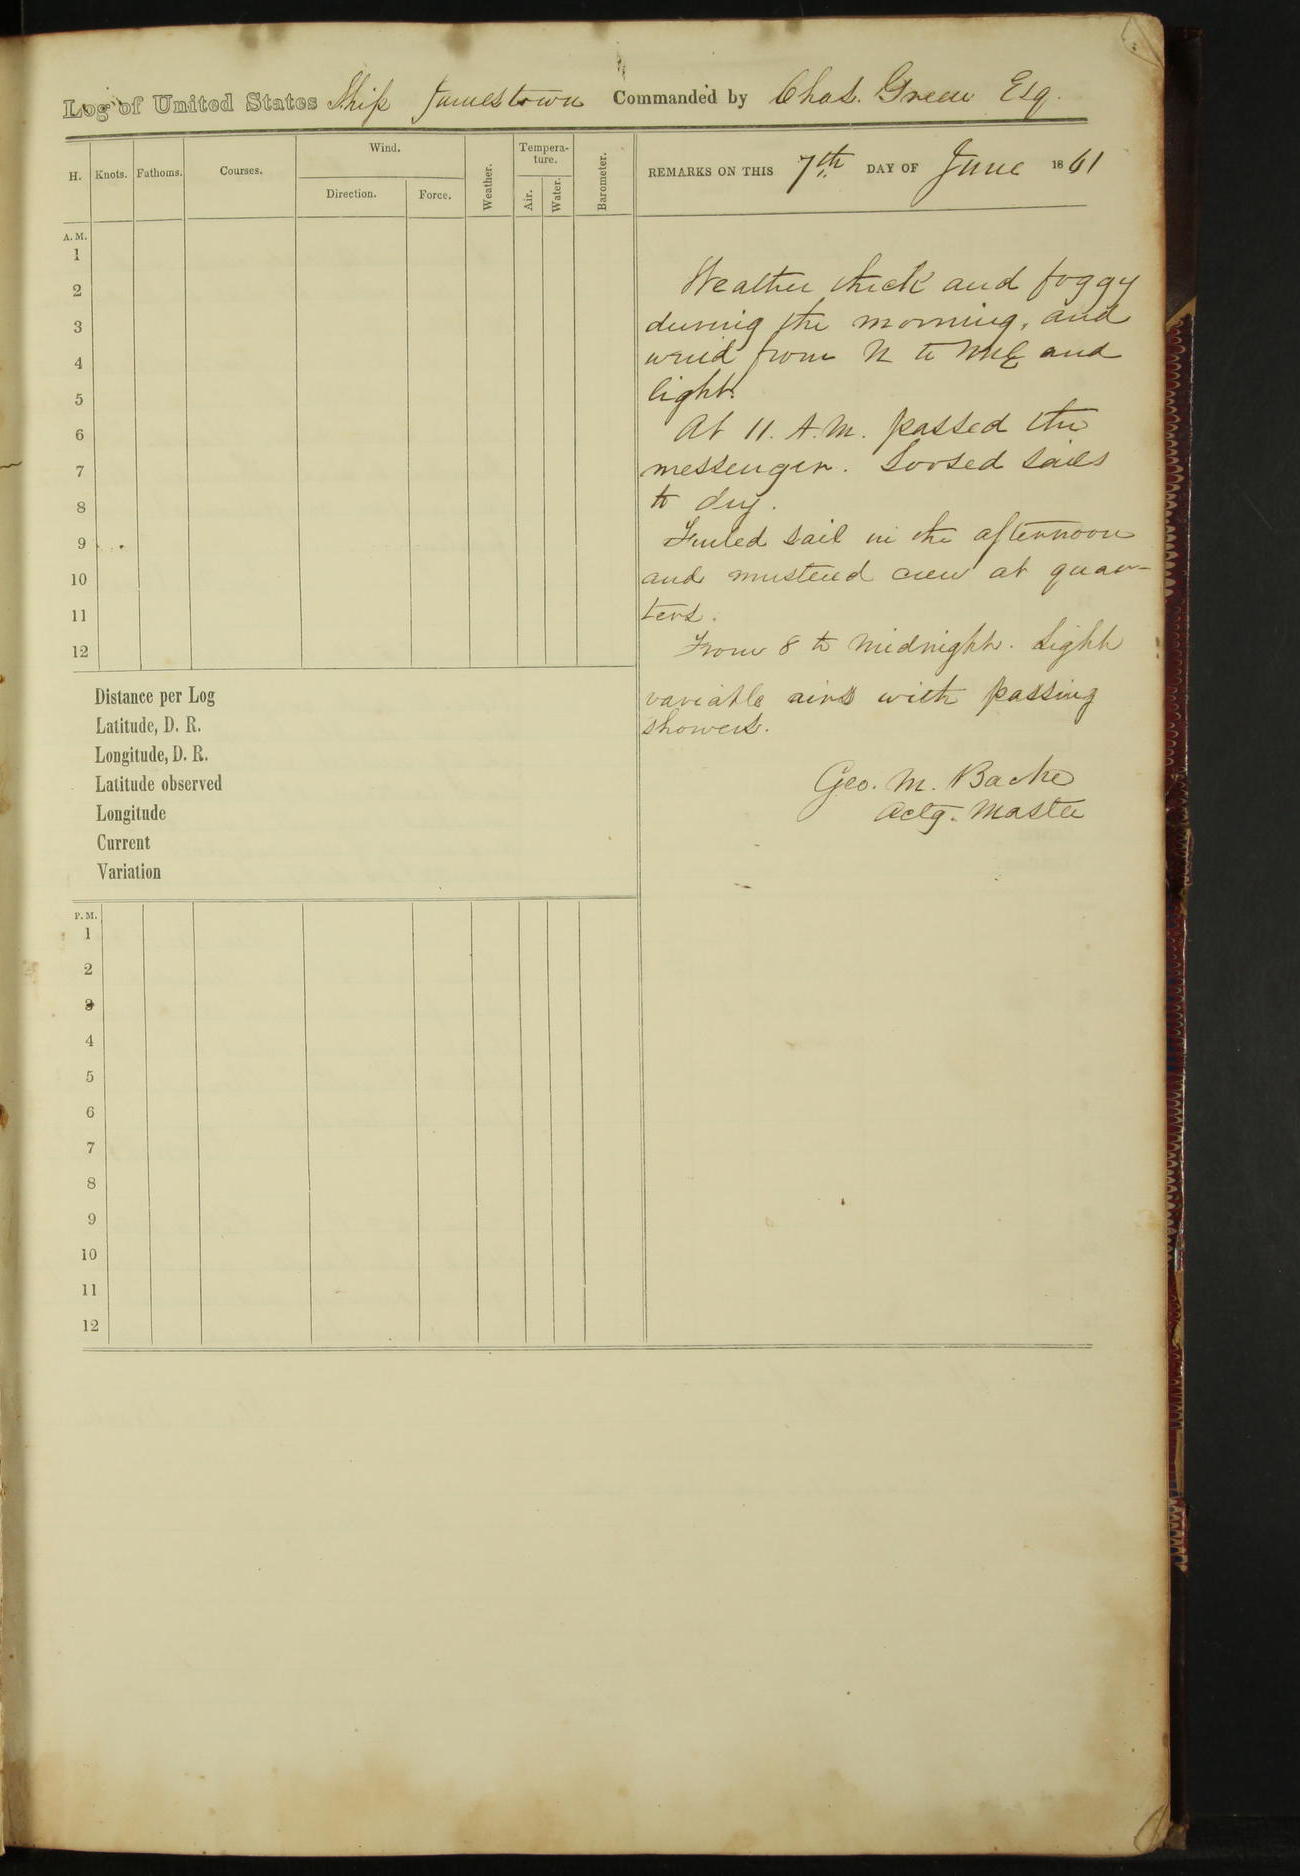 Log of United States Ship Jamestown Commanded by Chas. Green Esq.
H. Knots. Fathoms. Courses. Wind. Direction. Force. Weather. Tempera-ture. Air. Water. Barometer. REMARKS ON THIS 7th DAY OF June 1861
A. M.
1
2
3
4
5
6
7
8
9
10
11
12
Weather thick and foggy
during the morning, and
wind from N to NNE and
light.
At 11. A.M. passed the
messenger. Loosed sails
to dry.
Furled sail in the afternoon
and mustered crew at quar-
ters.
From 8 to Midnight. Light
variable airs with passing
showers.
Geo. M. Bache
Actg. Master
Distance per Log
Latitude, D. R.
Longitude, D. R.
Latitude observed
Longitude
Current
Variation
P. M.
1
2
3
4
5
6
7
8
9
10
11
12